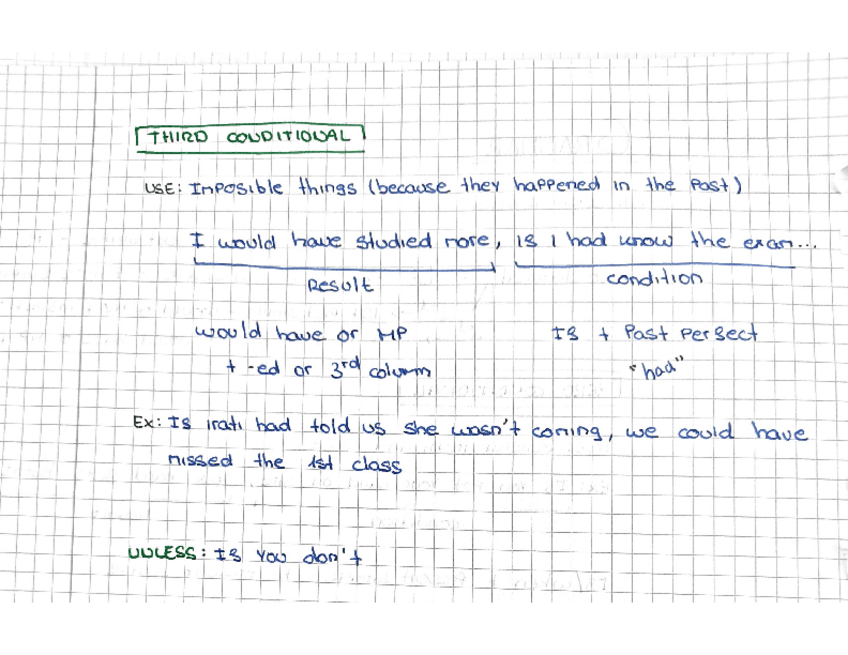 THIRD CONDITIONAL
USE: Imposible things (because they happened in the Past)
I would have studied more, If I had know the exam...
Result
condition
would have or MP
If + Past Perfect
+ -ed or 3rd column
"had"
Ex: If irati had told us she wasn't coming, we could have
missed the 1st class
UNLESS: If you don't